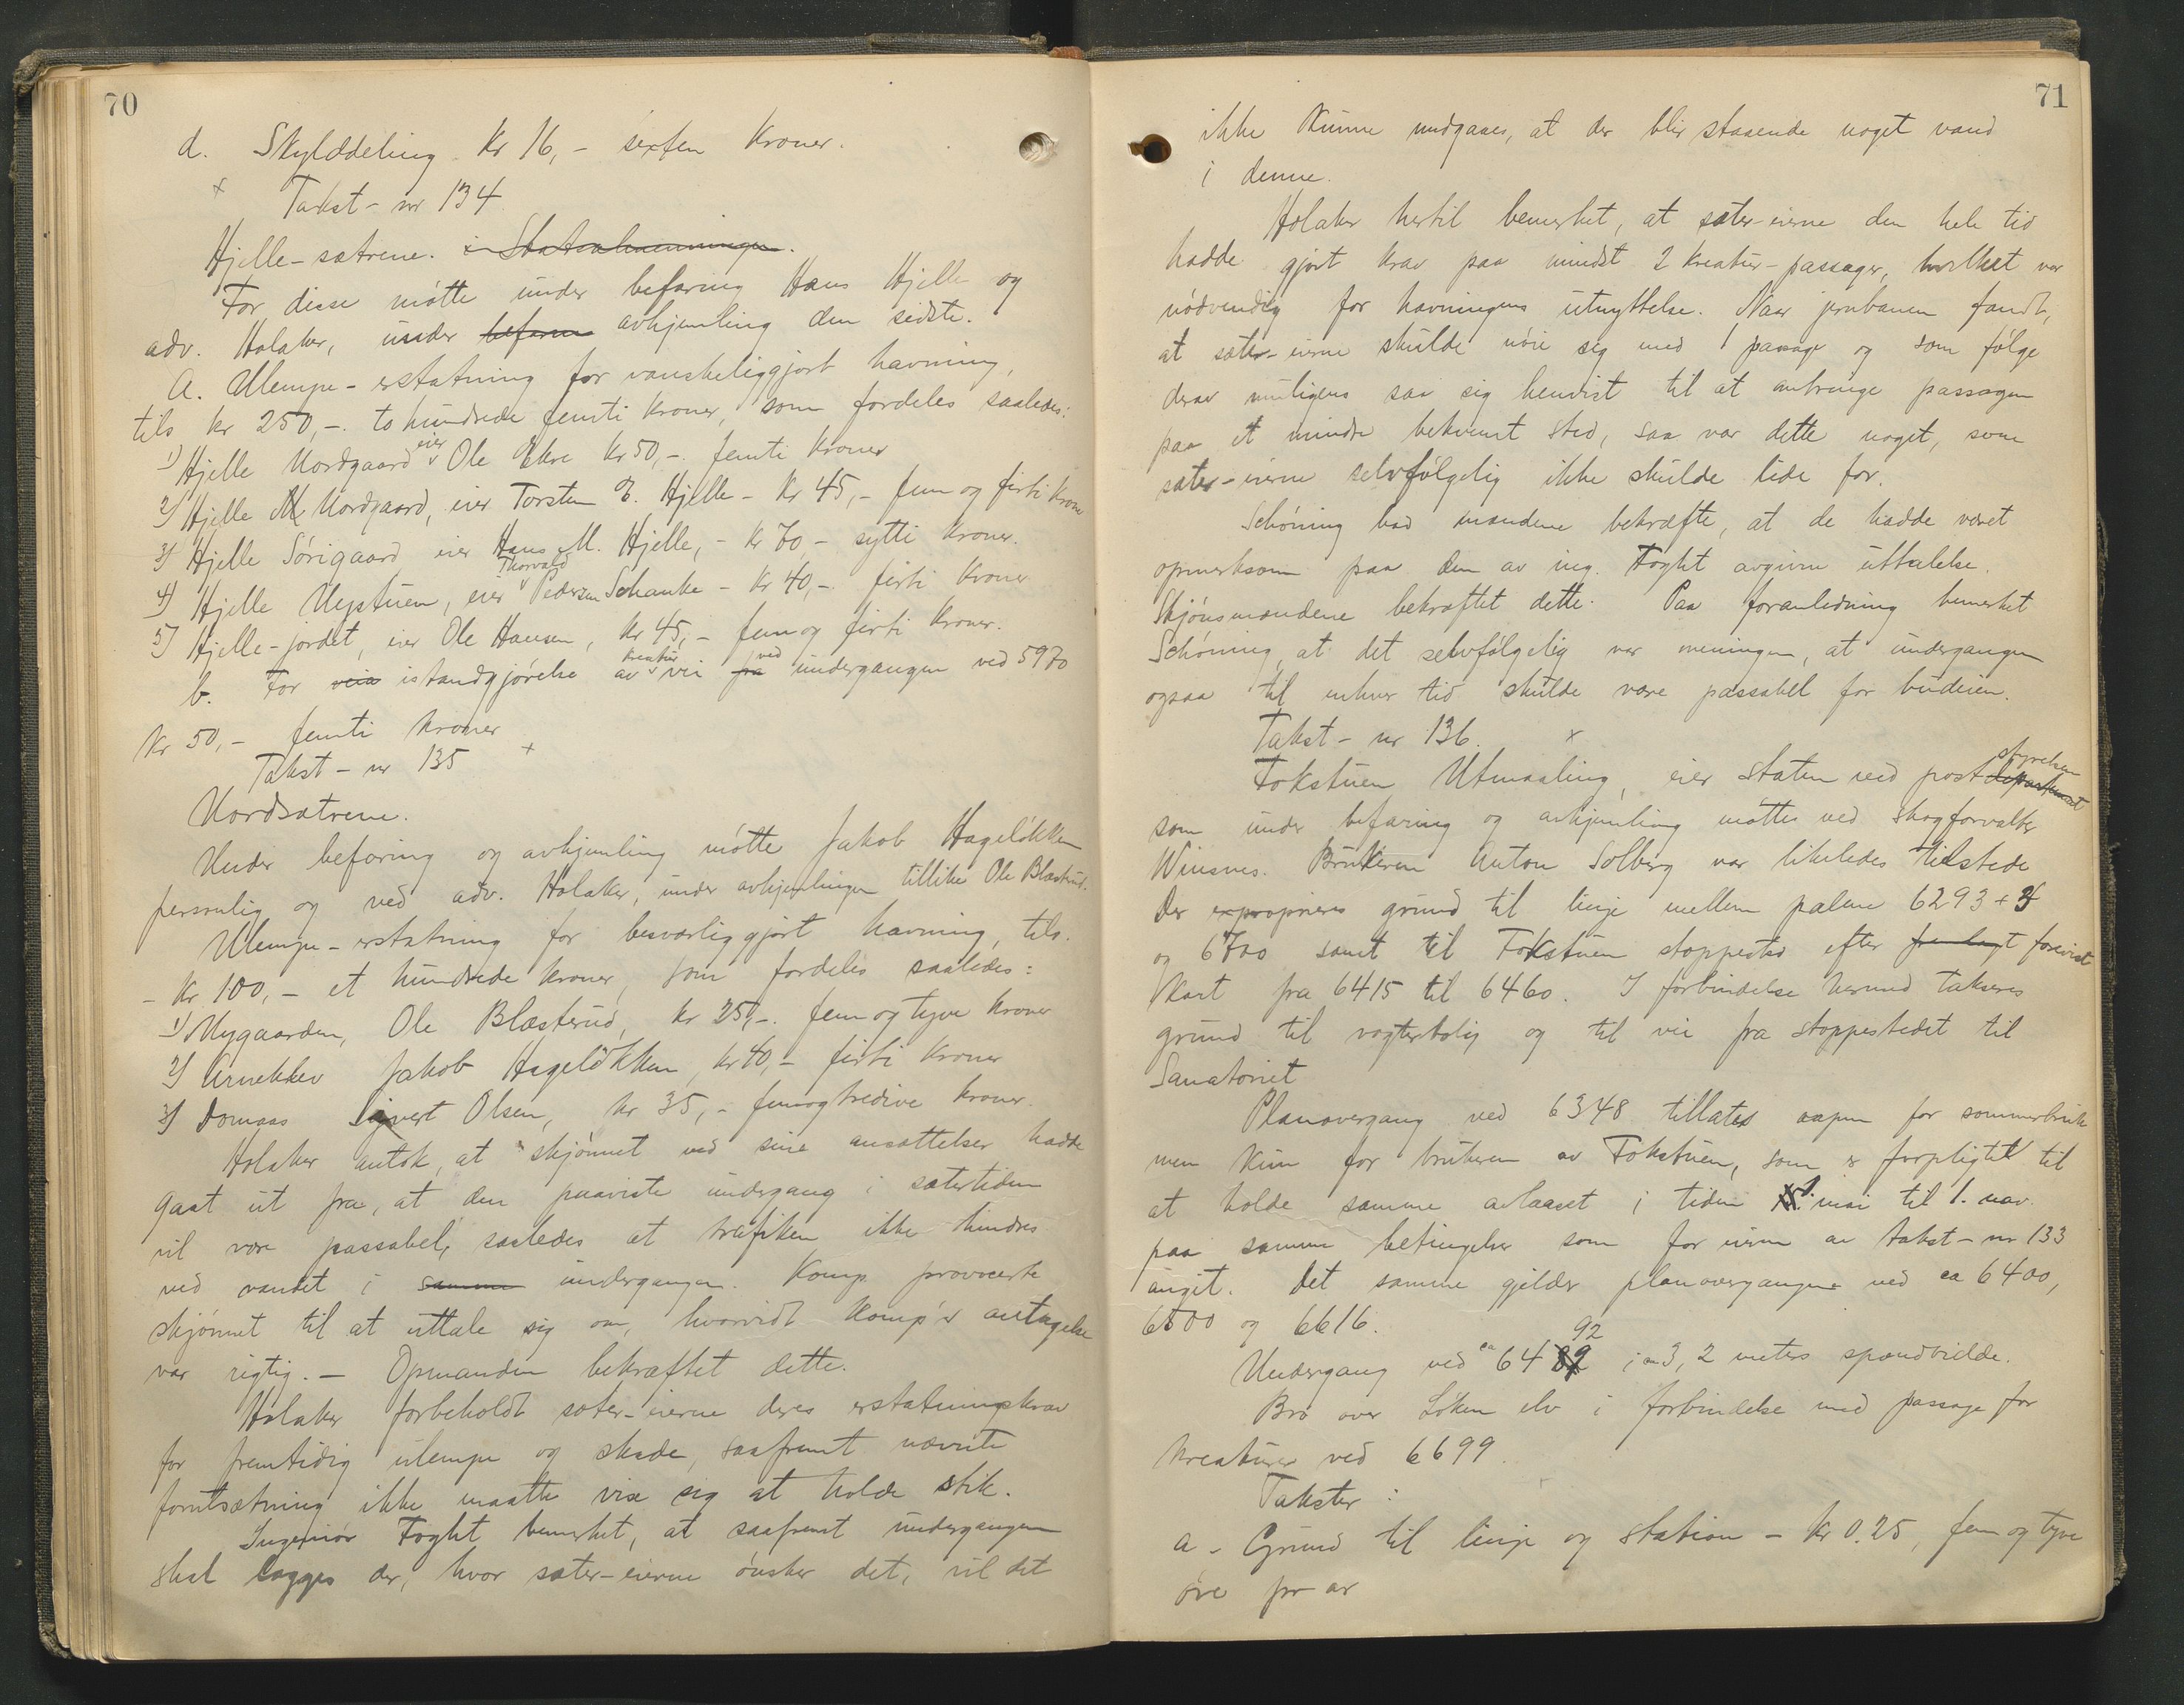 70
d. Skylddeling. Kr 16,- sexten kroner.
x Takst - nr 134
Hjelle-sætrene. i Statsalmenningen.
For disse mötte under befaring Hans Hjelle og
adv. Holaker, under befarin avhjemling den sidste.
a. Ulempe-erstatning for vanskeliggjort havning,
tils kr 250,-. to hundrede femti kroner, som fordeles saaledes:
1) Hjelle Nordgaard eier Ole Ekre Kr 50,-. femti kroner
2) Hjelle N Nordgaard, eier Torsten E. Hjelle - Kr 45,- fem og firti kroner
3) Hjelle Sörigaard eier Hans M. Hjelle, - Kr 70,- sytti kroner.
4) Hjelle Nystuen, eier Thorvald Pedersen Schanke - Kr 40,- firti kroner
5) Hjelle-jordet, eier Ole Hansen, Kr 45,- fem og firti kroner.
b. For veia istandgjörelse av kreatur vei pa ved undergangen ved 5970
Kr 50,- femti kroner
Takst - nr 135 x
Nordsætrene.
Under befaring og avhjemling mötte Jakob Hagelökken
personlig og ved adv. Holaker, under avhjemlingen tillike Ole Blæsterud.
Ulempe-erstatning for besværliggjort havning, tils.
- Kr 100,- et hundrede kroner, som fordeles saaledes:
1) Nygaarden, Ole Blæsterud, Kr 25,-. fem og tyve kroner
2) Urnekkev Jakob Hagelökken, kr 40,- firti kroner
3) Domaas Sigvert Olsen, Kr 35,- femogtredive kroner.
Holaker antok, at skjönnet ved sine ansættelser hadde
gaat ut fra, at den paaviste undergang i sætertiden
vil være passabel, saaledes at trafiken ikke hindres
ved vandet i samme undergangen. Komp. provocerte
skjönnet til at uttale sig om, hvorvidt komp's antagelse
var rigtig. - Opmanden bekræftet dette.
Holaker forbeholdt sæter-eierne deres erstatningskrav
for fremtidig ulempe og skade, saafremt nævnte
forutsætning ikke maatte vise sig at holde stik.
Ingeniör Foght bemerket, at saafremt undergangen
skal lægges der, hvor sæter-eierne önsker det, vil det
71
ikke kunne undgaaes, at der blir staaende noget vand
i denne.
Holaker hertil bemerket, at sæter-eierne den hele tid
hadde gjort krav paa mindst 2 kreatur-passager, hvilket var
nödvendig for havningens utnyttelse. Naar jernbanen fandt,
at sæter-eierne skulde nöie sig med 1 passage og som fölge
derav muligens saa sig henvist til at anbringe passagen
paa et mindre bekvemt sted, saa var dette noget, som
sæter-eierne selvfölgelig ikke skulde lide for.
Schöning bad mændene bekræfte, at de hadde været
opmerksom paa den av ing. Foght avgivne uttalelse.
Skjönsmændene bekræftet dette. Paa foranledning bemerket
Schöning, at det selvfölgelig var meningen, at undergangen
ogsaa til enhver tid skulde være passabel for budeien.
Takst - nr 136. x
Fokstuen Utmaaling, eier staten ved postdepartement styrelsen
som under befaring og avhjemling möttes ved skogforvalter
Winsnes. Brukeren Anton Solberg var likeledes tilstede
Der exproprieres grund til linje mellem pælene 6293 +
og 6700 samt til Fokstuen stoppested efter fremlagt forevist
Kart fra 6415 til 6460. I forbindelse hermed takseres
grund til vogterbolig og til vei fra stoppestedet til
Sanatoriet
Planovergang ved 6348 tillates aapen for sommerbruk
men kun for brukeren av Fokstuen, som er forpligtet til
at holde samme avlaaset i tiden 1. mai til 1. nov.
paa samme betingelser som for eierne av takst-nr 133
angit. Det samme gjelder planovergangene ved ca 6400,
6500 og 6616.
Undergang ved ca 6492 i 3,2 meters spændvidde.
Bro over Löken elv i forbindelse med passage for
kreaturer ved 6699.
Takster:
a - Grund til linje og station - Kr 0.25, fem og tyve
öre pr ar